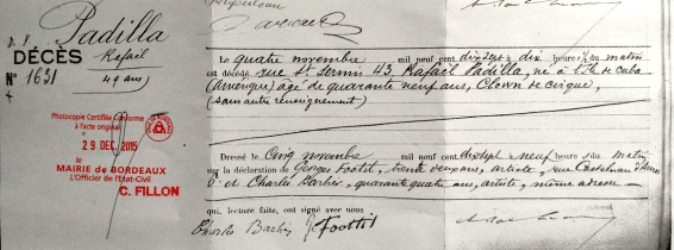 D. V.
Padilla
DÉCÈS
Rafaël
N° 1631
49 ans)
Photocopie Certifiée Conforme
à l'acte original
29 DEC. 2015
MAIRIE de BORDEAUX
L'Officier de l'Etat-Civil
C. FILLON
Le quatre novembre mil neuf cent dix sept à dix heures du matin
est décédé, rue St Sernin 43, Rafaël Padilla, né à l'île de Cuba
(Amérique) âgé de quarante neuf ans, Clown de cirque,
(sans autre renseignement)
Dressé le Cinq novembre mil neuf cent dix sept à neuf heures du matin
sur la déclaration de Georges Footit, trente deux ans, artiste, rue Castelnau d'Auros
6 et Charles Barbier, quarante quatre ans, artiste, même adresse
qui, lecture faite, ont signé avec nous
Charles Barbier G Foottit